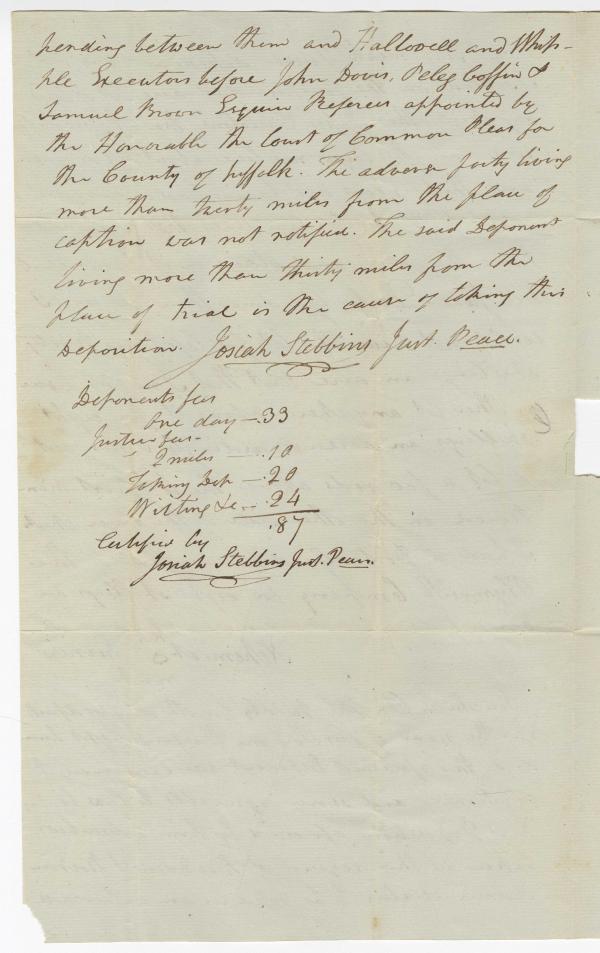 pending between them and Hallowell and Whip-
ple Executors before John Davis, Peleg Coffin &
Samuel Brown Esquires Referees appointed by
the Honorable the Court of Common Pleas for
the County of Suffolk. The adverse party living
more than twenty miles from the place of
caption was not notified. The said Deponent
living more than thirty miles from the
place of trial is the cause of taking this
Deposition. Josiah Stebbins Just. Peace.
Deponents fees
One day — .33
Justice fees —
2 miles — .10
Taking Dep — .20
Writing &c .. .24
.87
Certified by
Josiah Stebbins Just. Peace.